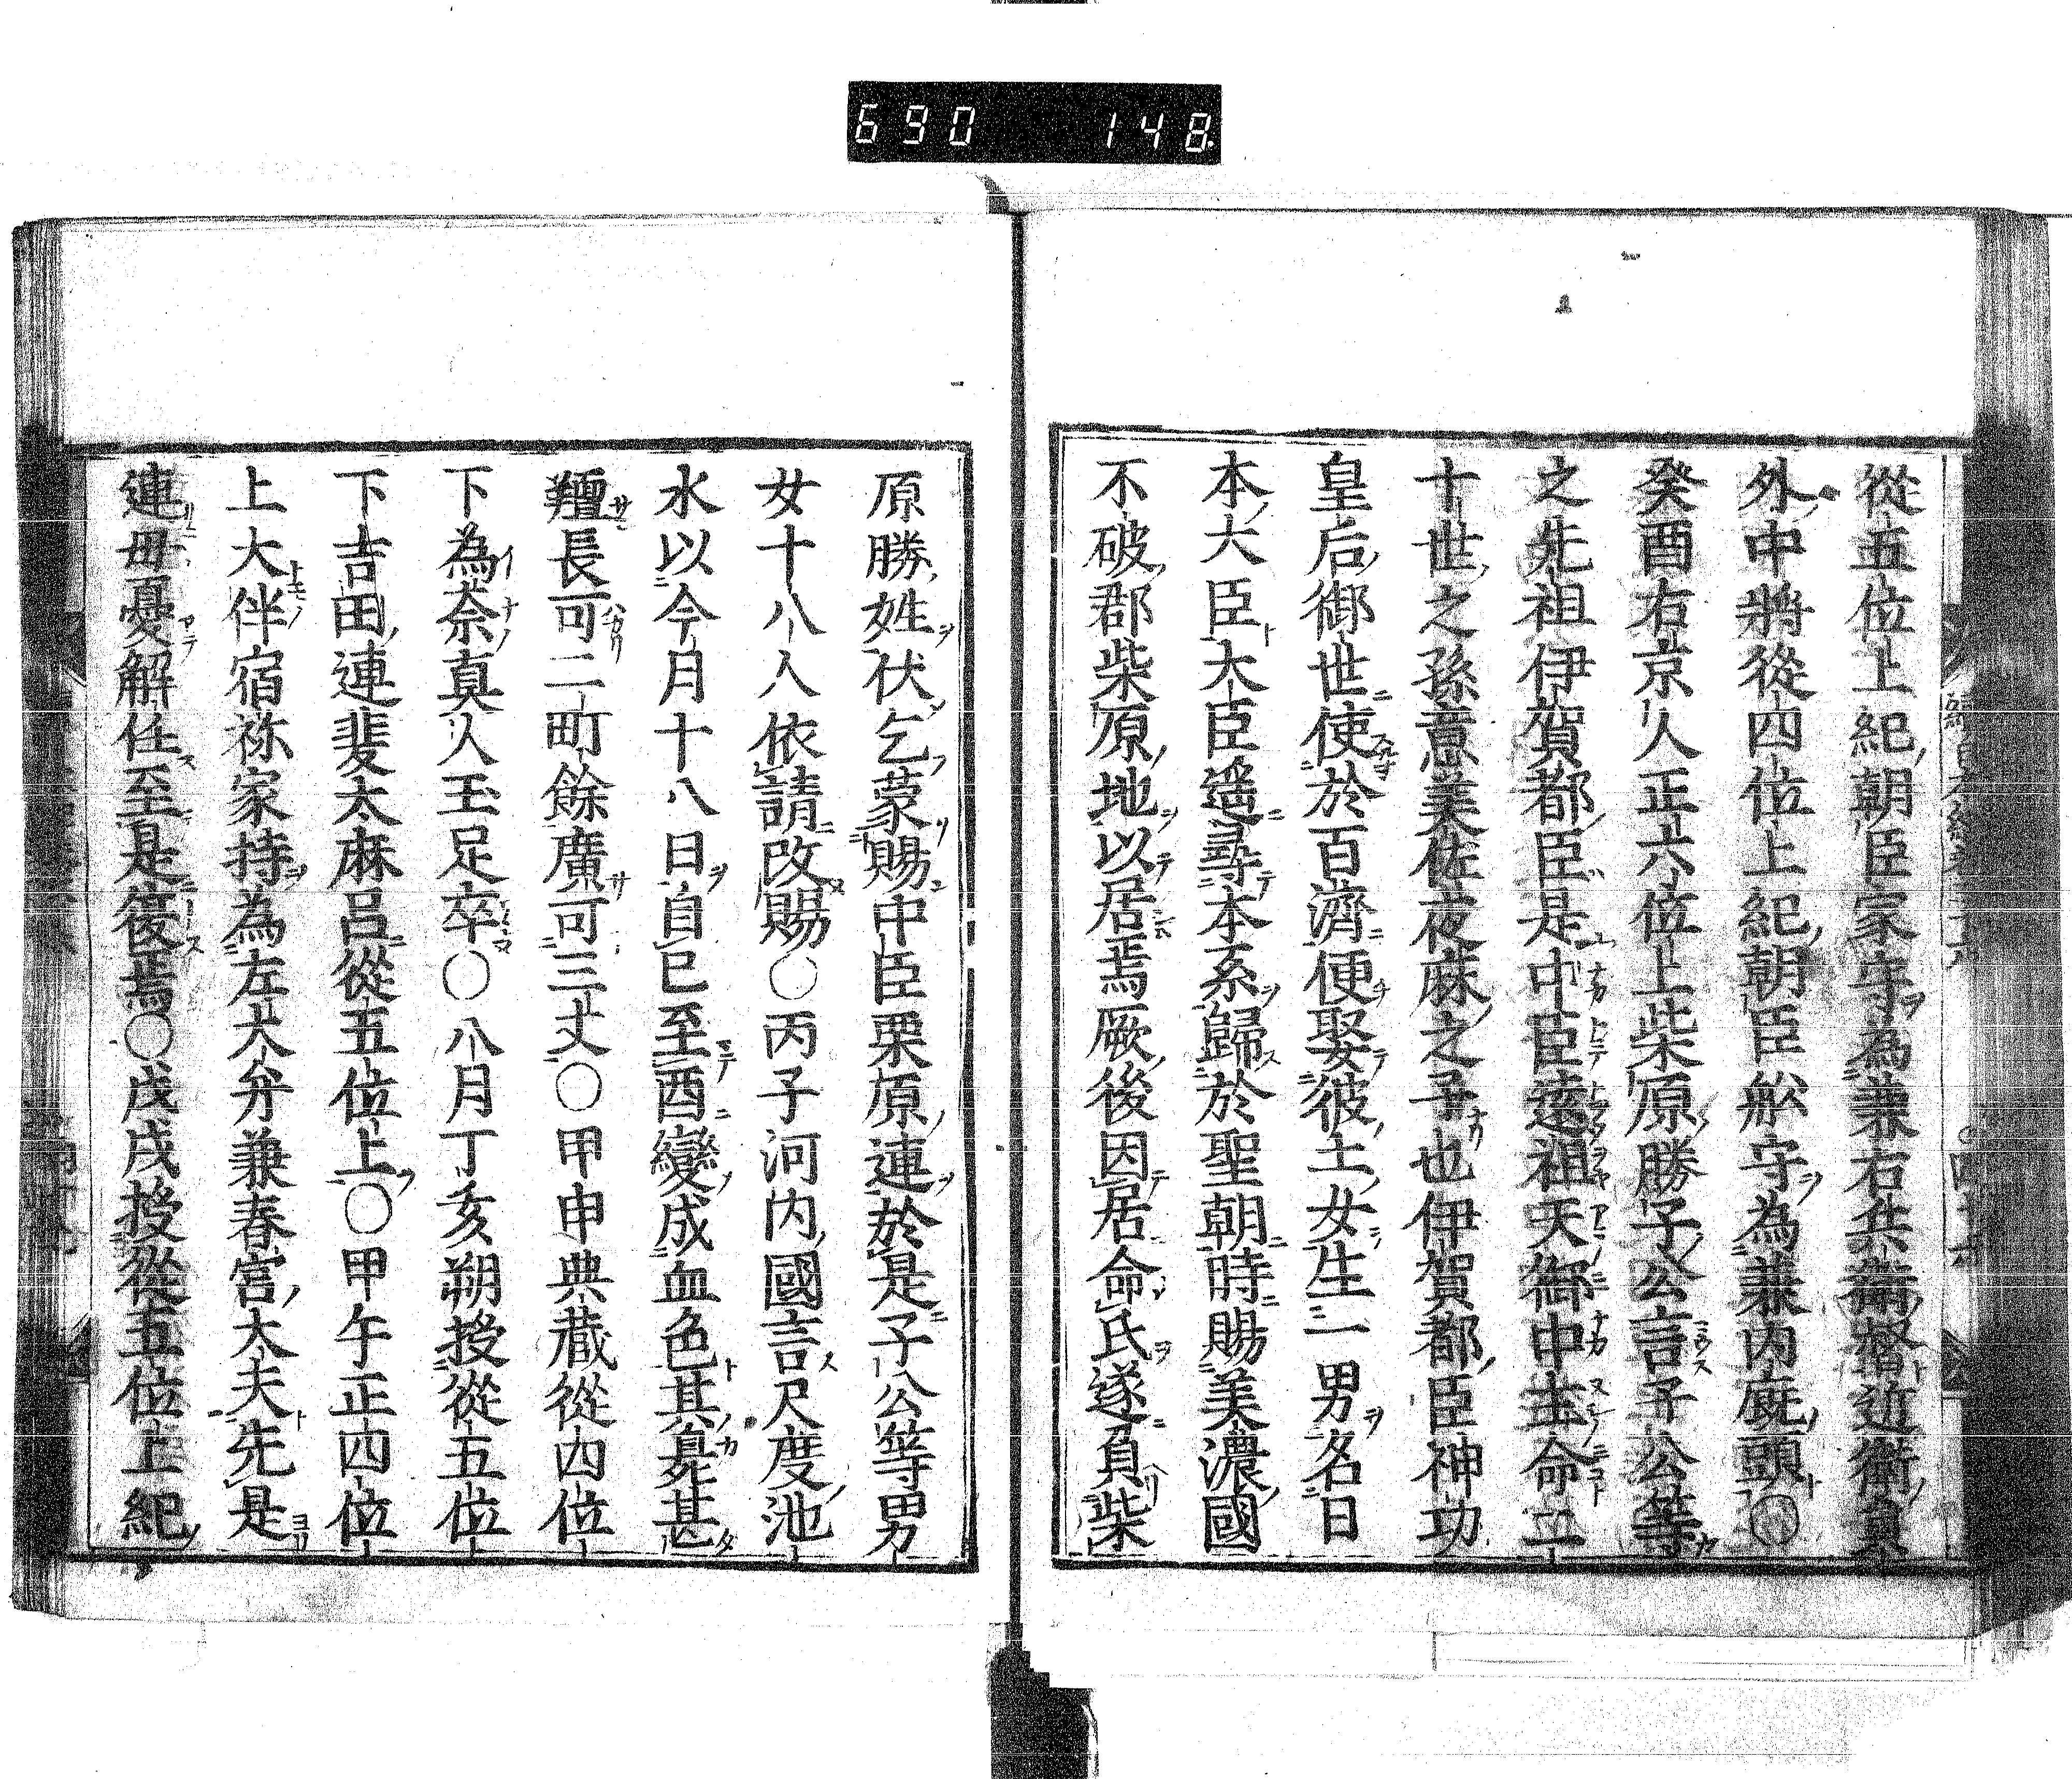 690 148
從五位上紀朝臣家守為兼右兵衛督近衛員
外中將從四位上紀朝臣船守為兼内廐頭〇
癸酉右京人正六位上柴原勝子公言子公等
之先祖伊賀都臣是中臣遠祖天御中主命二
十世之孫意美佐夜麻之子也伊賀都臣神功
皇后御世使於百濟便娶彼土女生二男名曰
本大臣大臣遥尋本系歸於聖朝時賜美濃國
不破郡柴原地以居焉厥後因居命氏遂負柴
原勝姓伏乞蒙賜中臣栗原連於是子公等男
女十八人依請改賜〇丙子河内國言尺度池
水以今月十八日自巳至酉變成血色其臰甚
羶長可二町餘廣可三丈〇甲申典藏從四位
下為奈真人玉足卒〇八月丁亥朔授從五位
下吉田連斐太麻呂從五位上〇甲午正四位
上大伴宿祢家持為左大弁兼春宮大夫先是
連毋憂解任至是復焉〇戊戌授從五位上紀